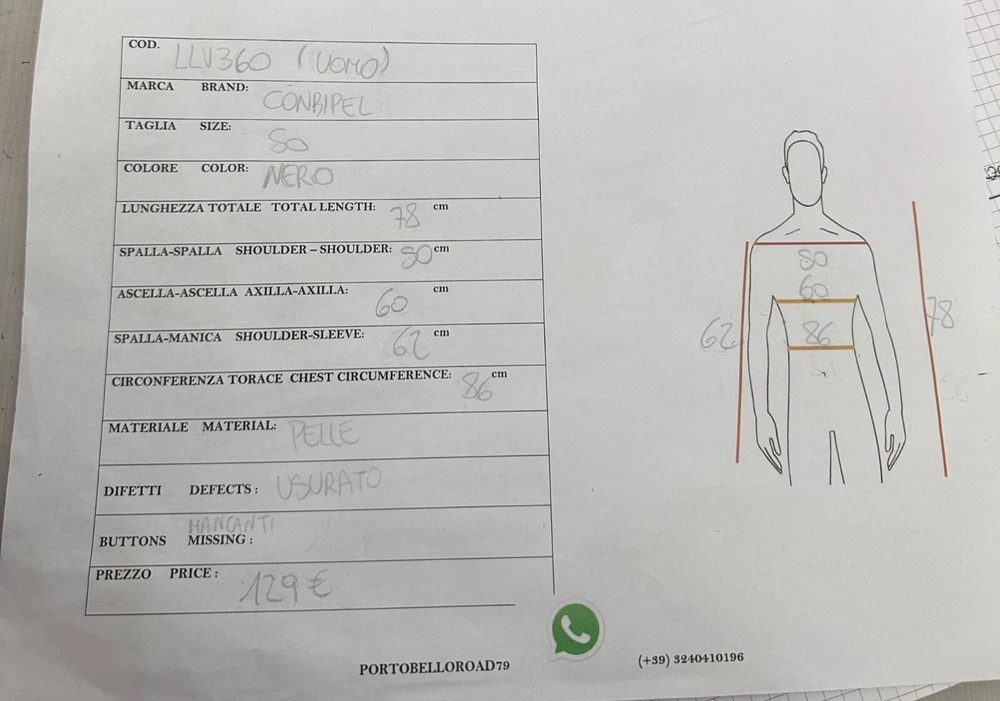 COD. LLV360 (UOMO)
MARCA BRAND: CONBIPEL
TAGLIA SIZE: 50
COLORE COLOR: NERO
LUNGHEZZA TOTALE TOTAL LENGTH: 78 cm
SPALLA-SPALLA SHOULDER – SHOULDER: 50 cm
ASCELLA-ASCELLA AXILLA-AXILLA: 60 cm
SPALLA-MANICA SHOULDER-SLEEVE: 62 cm
CIRCONFERENZA TORACE CHEST CIRCUMFERENCE: 86 cm
MATERIALE MATERIAL: PELLE
DIFETTI DEFECTS : USURATO
MANCANTI
BUTTONS MISSING :
PREZZO PRICE : 129 €
50
60
62
86
78
PORTOBELLOROAD79
(+39) 3240410196